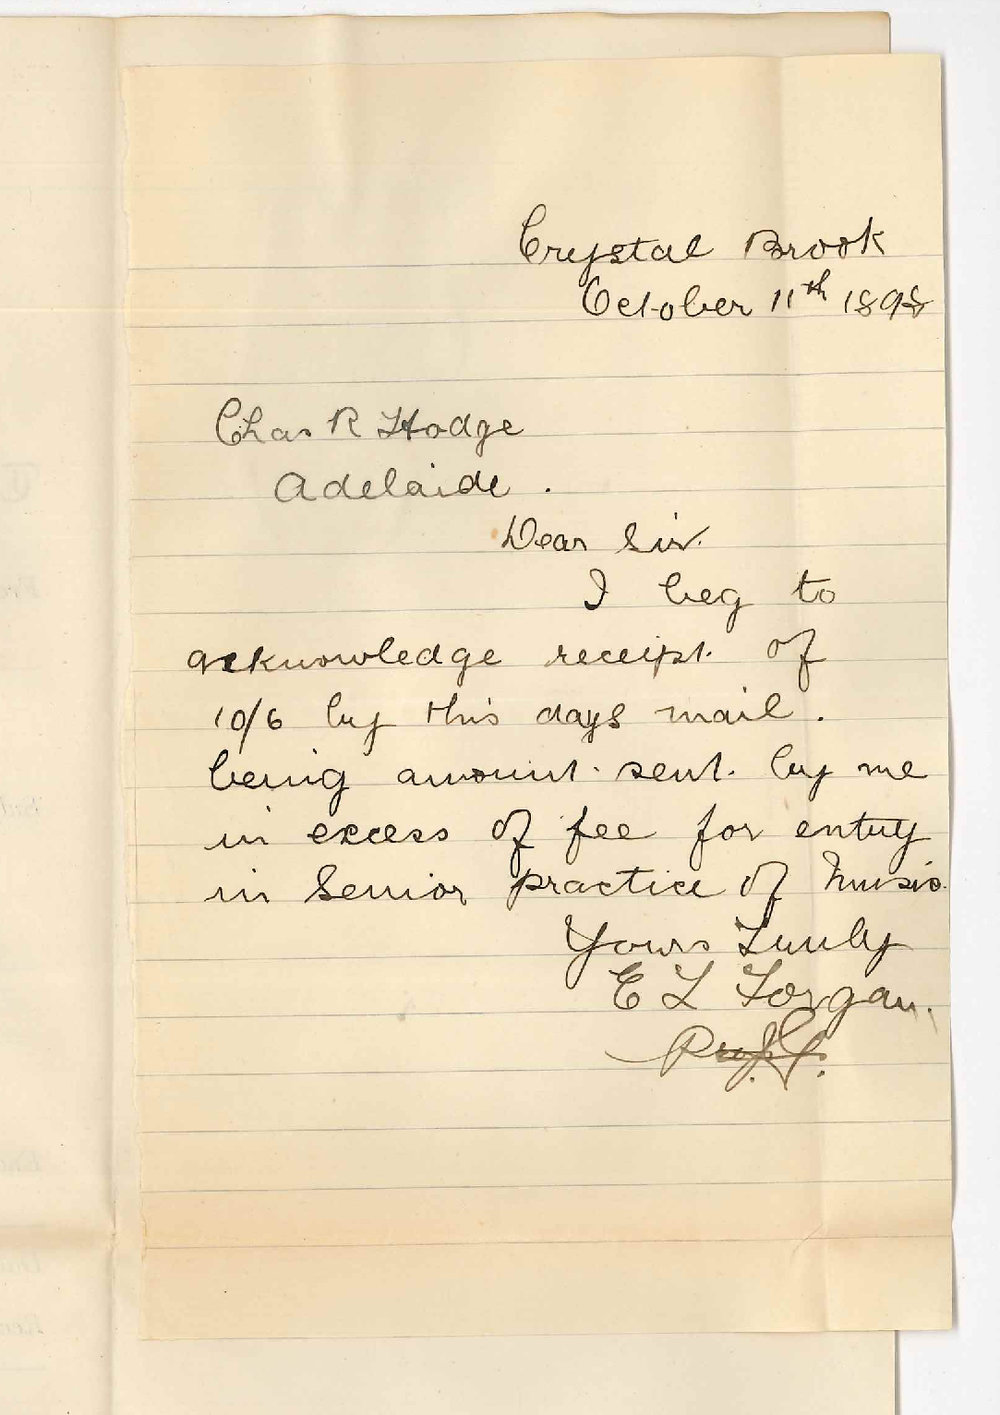 Crystal Brook
October 11th 1898
Chas R Hodge
Adelaide.
Dear Sir.
I beg to
acknowledge receipt of
10/6 by this days mail.
being amount sent by me
in excess of fee for entry
in Senior practice of Music.
Yours Truly
E L Torgan.